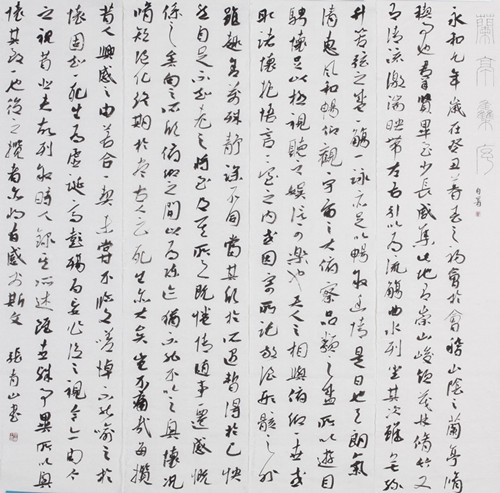 蘭亭集序
永和九年歲在癸丑暮春之初會於會稽山陰之蘭亭脩
禊事也羣賢畢至少長咸集此地有崇山峻領茂林脩竹又
有清流激湍映帶左右引以為流觴曲水列坐其次雖無絲
竹管弦之盛一觴一詠亦足以暢敘幽情是日也天朗氣
清惠風和暢仰觀宇宙之大俯察品類之盛所以遊目
騁懷足以極視聽之娛信可樂也夫人之相與俯仰一世或
取諸懷抱悟言一室之內或因寄所託放浪形骸之外
雖趣舍萬殊靜躁不同當其欣於所遇暫得於己快
然自足不知老之將至及其所之既惓情隨事遷感慨
係之矣向之所欣俯仰之間以為陳迹猶不能不以之興懷況
脩短隨化終期於盡古人云死生亦大矣豈不痛哉每攬
昔人興感之由若合一契未嘗不臨文嗟悼不能喻之於
懷固知一死生為虛誕齊彭殤為妄作後之視今亦由今
之視昔悲夫故列敘時人錄其所述雖世殊事異所以興
懷其致一也後之攬者亦將有感於斯文 張青山書